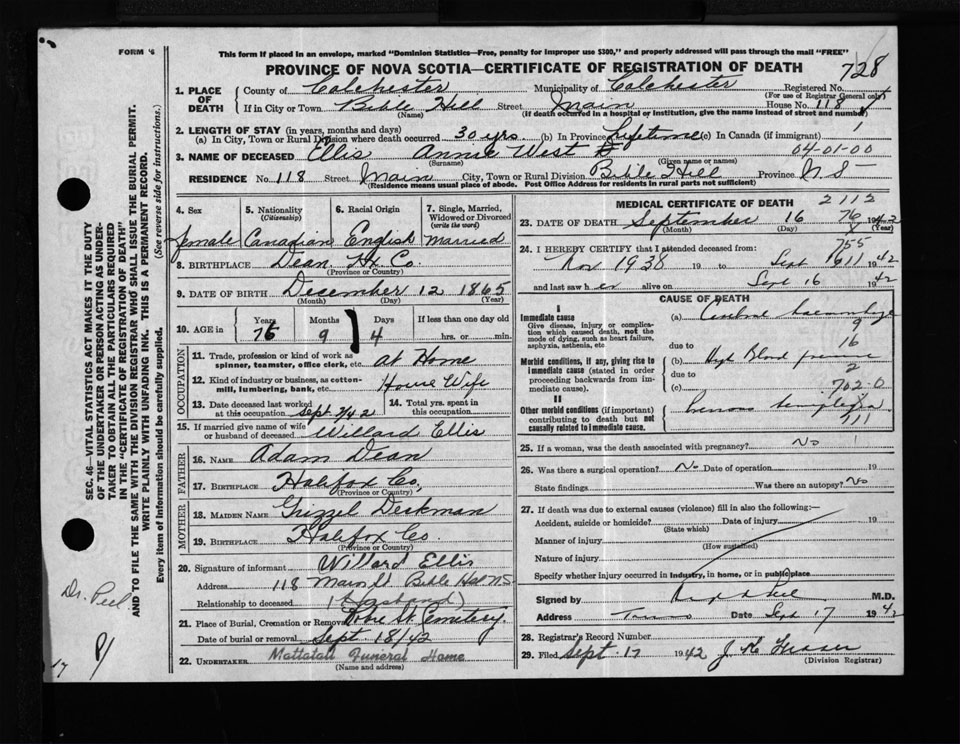 FORM 6
This form if placed in an envelope, marked "Dominion Statistics—Free, penalty for improper use $300," and properly addressed will pass through the mail "FREE"
PROVINCE OF NOVA SCOTIA—CERTIFICATE OF REGISTRATION OF DEATH 728
1. PLACE OF DEATH
County of Colchester Municipality of Colchester Registered No.
(For use of Registrar General only)
If in City or Town Bible Hill Street Main House No. 118
(Name) (If death occurred in a hospital or institution, give the name instead of street and number)
2. LENGTH OF STAY (in years, months and days)
(a) In City, Town or Rural Division where death occurred 30 yrs (b) In Province Lifetime (c) In Canada (if immigrant) 1
3. NAME OF DECEASED Ellis Annie West D 04-01-00
(Surname) (Given name or names)
RESIDENCE No. 118 Street Main City, Town or Rural Division Bible Hill Province N S
(Residence means usual place of abode. Post Office Address for residents in rural parts not sufficient)
4. Sex
female
5. Nationality
(Citizenship)
Canadian
6. Racial Origin
English
7. Single, Married, Widowed or Divorced
(write the word)
Married
8. BIRTHPLACE Dean Hx Co.
(Province or Country)
9. DATE OF BIRTH December 12 1865
(Month) (Day) (Year)
10. AGE in
Years Months Days If less than one day old
9 4 hrs. or min.
OCCUPATION
11. Trade, profession or kind of work as spinner, teamster, office clerk, etc. at Home
12. Kind of industry or business, as cotton-mill, lumbering, bank, etc. House Wife
13. Date deceased last worked at this occupation Sept /42
14. Total yrs. spent in this occupation
15. If married give name of wife or husband of deceased Willard Ellis
FATHER
16. NAME Adam Dean
17. BIRTHPLACE Halifax Co.,
(Province or Country)
MOTHER
18. MAIDEN NAME Grizzel Deskman
19. BIRTHPLACE Halifax Co.
(Province or Country)
20. Signature of informant Willard Ellis
Address 118 Main St. Bible Hill N S
Relationship to deceased (Husband)
21. Place of Burial, Cremation or Removal St. Cemetery.
Date of burial or removal Sept 18/42
22. UNDERTAKER Mattatall Funeral Home
(Name and address)
MEDICAL CERTIFICATE OF DEATH 2112
23. DATE OF DEATH September 16 76 1942
(Month) (Day) (Year)
24. I HEREBY CERTIFY that I attended deceased from: 755
Nov 1938 19 to Sept 16 1942
and last saw her alive on Sept 16 1942
CAUSE OF DEATH
I
Immediate cause
Give disease, injury or complication which caused death, not the mode of dying, such as heart failure, asphyxia, asthenia, etc
(a) Cerebral haemorrhage
9
due to 16
Morbid conditions, if any, giving rise to immediate cause (stated in order proceeding backwards from immediate cause).
(b) High Blood pressure
due to 2
(c) 702-0
II
Other morbid conditions (if important) contributing to death but not causally related to immediate cause.
111
25. If a woman, was the death associated with pregnancy? No
26. Was there a surgical operation? No Date of operation 19
State findings Was there an autopsy? No
27. If death was due to external causes (violence) fill in also the following:—
Accident, suicide or homicide? Date of injury 19
(State which)
Manner of injury
(How sustained)
Nature of injury
Specify whether injury occurred in industry, in home, or in public place
Signed by M.D.
Address Truro Date Sept 17 1942
28. Registrar's Record Number
29. Filed Sept. 17 1942
(Division Registrar)
SEC. 46—VITAL STATISTICS ACT MAKES IT THE DUTY OF THE UNDERTAKER OR PERSON ACTING AS UNDERTAKER TO OBTAIN ALL THE PARTICULARS REQUIRED IN THE "CERTIFICATE OF REGISTRATION OF DEATH" AND TO FILE THE SAME WITH THE DIVISION REGISTRAR WHO SHALL ISSUE THE BURIAL PERMIT.
WRITE PLAINLY WITH UNFADING INK. THIS IS A PERMANENT RECORD.
Every item of information should be carefully supplied. (See reverse side for instructions.)
Dr. Peel
17